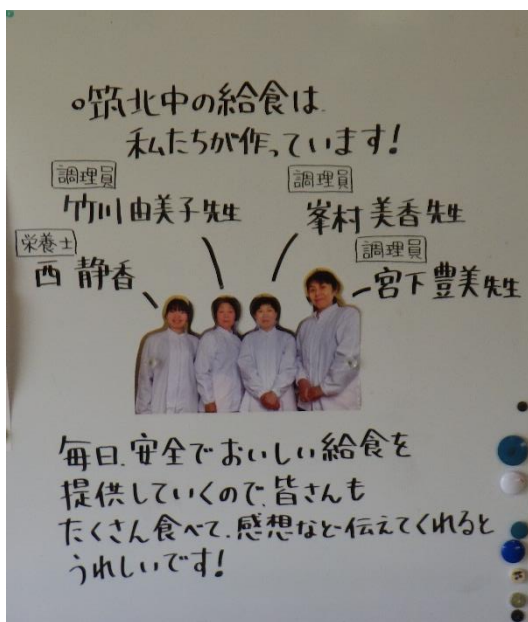 ○筑北中の給食は、
私たちが作っています!
調理員
竹川由美子先生
調理員
峯村美香先生
栄養士
西 静香
調理員
宮下豊美先生
毎日、安全でおいしい給食を
提供していくので、皆さんも
たくさん食べて、感想など伝えてくれると
うれしいです!